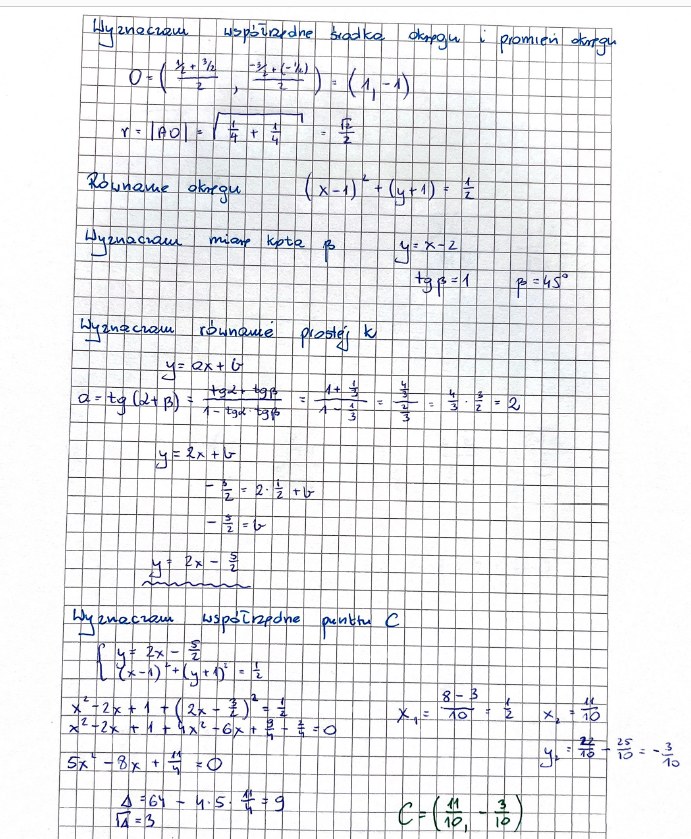 Wyznaczam współrzędne środka okręgu i promień okręgu
O = ( (1/2 + 3/2)/2 , (-3/2 + (-1/2))/2 ) = (1, -1)
r = |AO| = √(1/4 + 1/4) = √2/2
Równanie okręgu (x-1)² + (y+1) = 1/2
Wyznaczam miarę kąta β y = x - 2
tgβ = 1 β = 45°
Wyznaczam równanie prostej k
y = ax + b
a = tg(α+β) = (tgα + tgβ)/(1 - tgα · tgβ) = (1 + 1/3)/(1 - 1/3) = (4/3)/(2/3) = 4/3 · 3/2 = 2
y = 2x + b
-3/2 = 2 · 1/2 + b
-5/2 = b
y = 2x - 5/2
Wyznaczam współrzędne punktu C
{ y = 2x - 5/2
(x-1)² + (y+1)² = 1/2
x² - 2x + 1 + (2x - 3/2)² = 1/2
x² - 2x + 1 + 4x² - 6x + 9/4 - 2/4 = 0
5x² - 8x + 11/4 = 0
Δ = 64 - 4·5·11/4 = 9
√Δ = 3
x₁ = (8-3)/10 = 1/2 x₂ = 11/10
y₂ = 22/10 - 25/10 = -3/10
C = (11/10, -3/10)